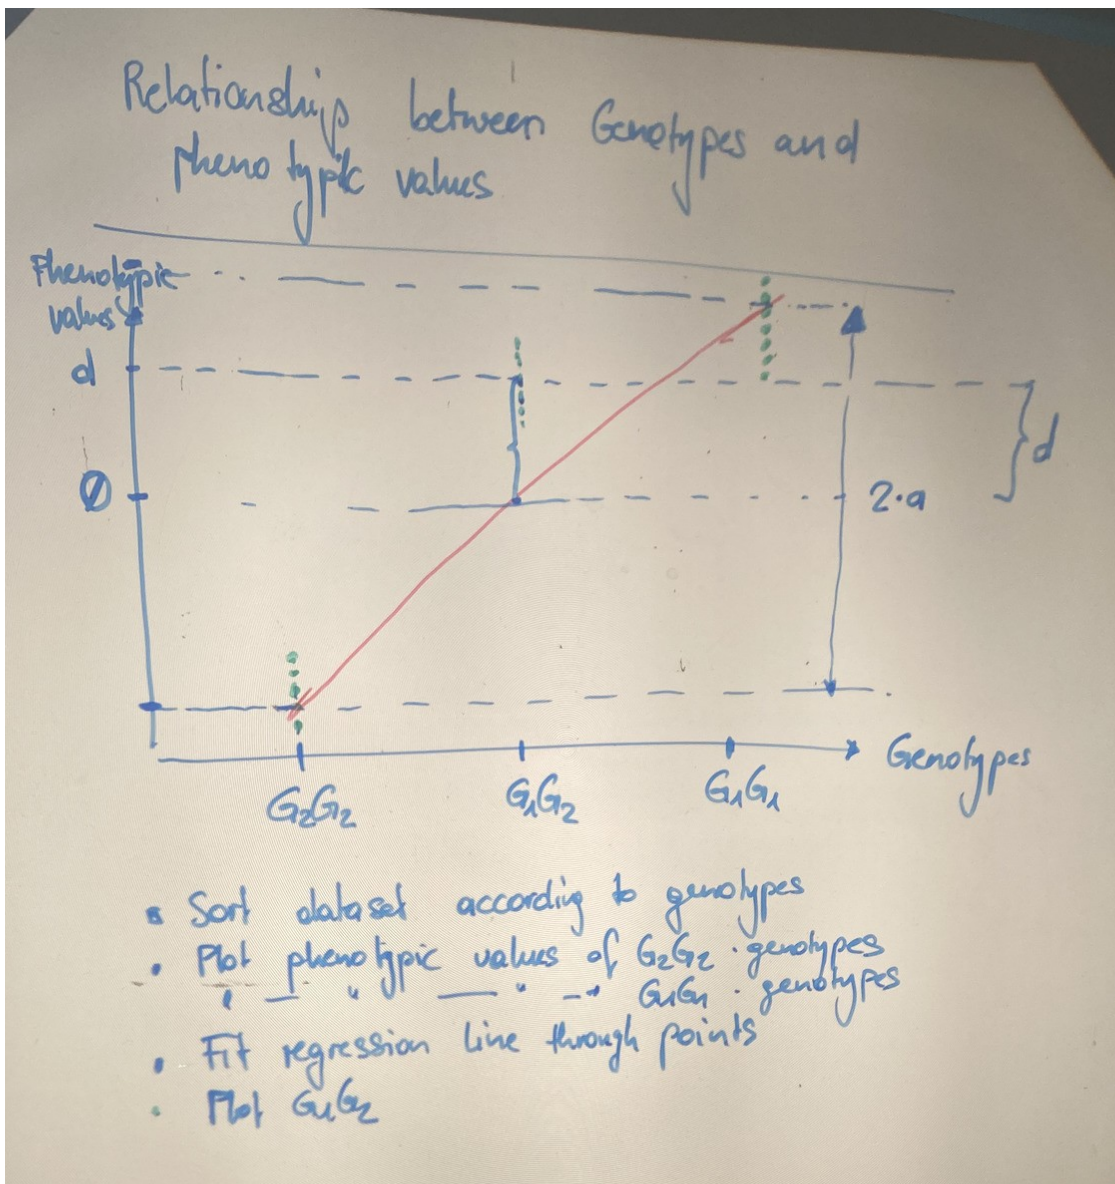 Relationship between Genotypes and
phenotypic values
Phenotypic
values
d
0
d
2·a
Genotypes
G₂G₂
G₁G₂
G₁G₁
• Sort dataset according to genotypes
• Plot phenotypic values of G₂G₂ · genotypes
" — " — " —" G₁G₁ · genotypes
• Fit regression line through points
• Plot G₁G₂